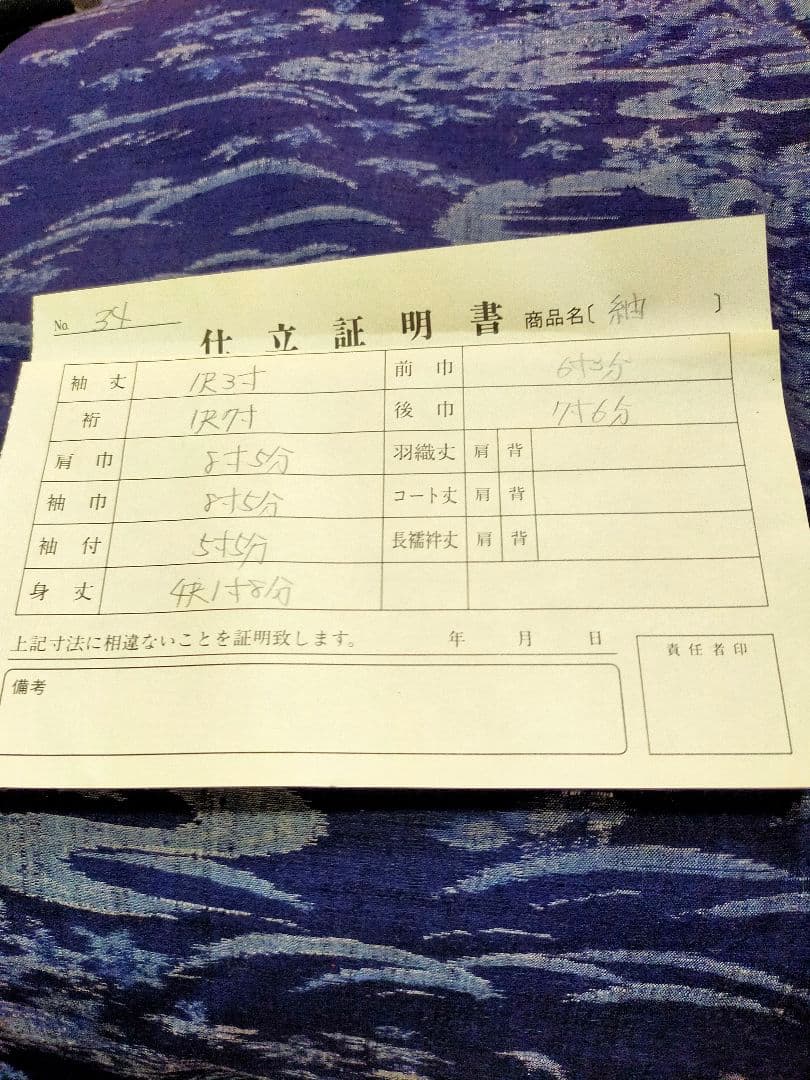 No. 34
仕立証明書 商品名〔 紬 〕
袖丈 1尺3寸 前巾 6寸3分
裄 1尺7寸 後巾 7寸6分
肩巾 8寸5分 羽織丈 肩 背
袖巾 8寸5分 コート丈 肩 背
袖付 5寸5分 長襦袢丈 肩 背
身丈 4尺1寸8分
上記寸法に相違ないことを証明致します。 年 月 日
責任者印
備考